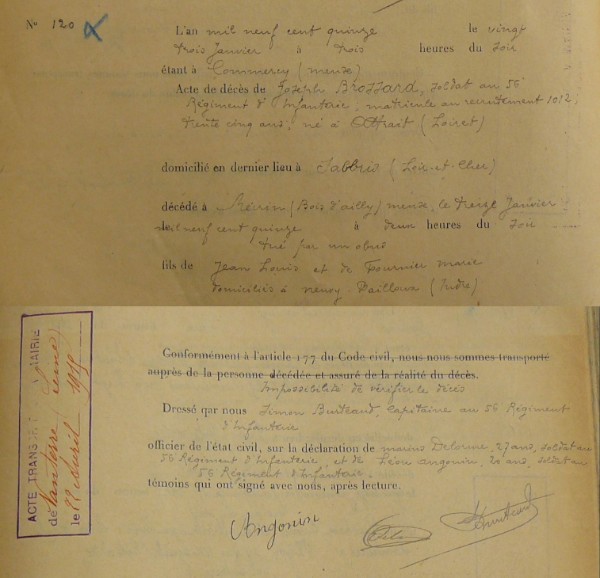 N° 120
L'an mil neuf cent quinze le vingt
trois Janvier à trois heures du soir
étant à Commercy (meuse)
Acte de décès de Joseph Brossard, soldat au 56e
Régiment d'Infanterie, matricule au recrutement 1012,
trente cinq ans, né à (Loiret)
domicilié en dernier lieu à Salbris (Loir-et-Cher)
décédé à (Bois d'ailly) meuse, le treize Janvier
mil neuf cent quinze à deux heures du soir
tué par un obus
fils de Jean Louis et de Fournier marie
domiciliés à (Indre)
ACTE TRANSCRIT MAIRIE
de Nanterre (Seine)
le 22 avril 1918
Conformément à l'article 177 du Code civil, nous nous sommes transporté
auprès de la personne décédée et assuré de la réalité du décès.
Impossibilité de vérifier le décès
Dressé par nous Simon Capitaine au 56 Régiment
d'Infanterie
officier de l'état civil, sur la déclaration de marius Delorme, 27 ans, soldat au
56 Régiment d'Infanterie, et de Léon Angonin, 20 ans, soldat au
56 Régiment d'Infanterie,
témoins qui ont signé avec nous, après lecture.
Angonin